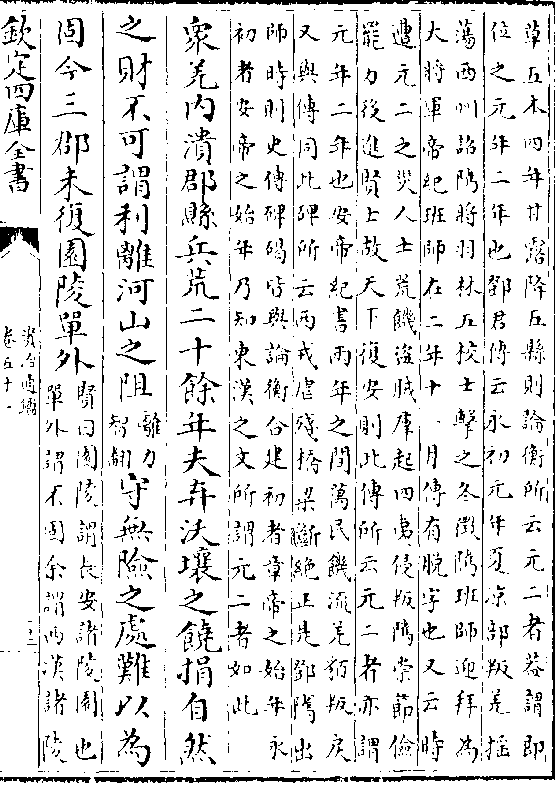 草五本四年甘露降五縣則論衡所云元二者蓋謂即
位之元年二年也鄧君傳云永初元年夏涼部叛羌揺
蕩西州詔隲將羽林五校士擊之冬徵隲班師迎拜為
大將軍帝紀班師在二年十一月傳有脱字也又云時
遭元二之災人士荒饑盜賊羣起四夷侵叛隲崇節儉
罷力役進賢士故天下復安則此傳所云元二者亦謂
元年二年也安帝紀書兩年之間萬民饑流羌貊叛戾
又與傳同此碑所云西戎虐殘橋梁斷絶正是鄧隲出
師時則史傳碑碣皆與論衡合建初者章帝之始年永
初者安帝之始年乃知東漢之文所謂元二者如此
衆羌内潰郡縣兵荒二十餘年夫弃沃壤之饒捐自然
之財不可謂利離河山之阻離力智翻守無險之處難以為
固今三郡未復園陵單外賢曰園陵謂長安諸陵園也
單外謂不固余謂西漢諸陵
欽定四庫全書
資治通鑑
卷五十一